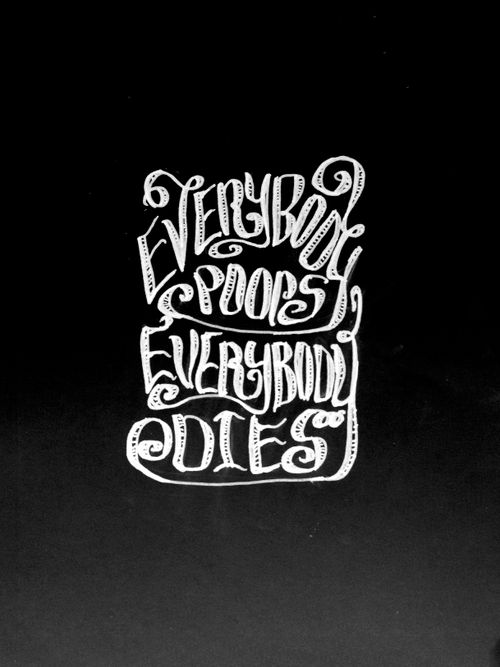 EVERYBODY
POOPS
EVERYBODY
DIES